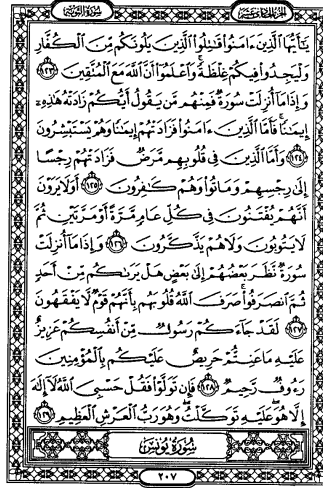 الجزء الحادي عشر
سورة التوبة
يَـٰٓأَيُّهَا ٱلَّذِينَ ءَامَنُوا۟ قَـٰتِلُوا۟ ٱلَّذِينَ يَلُونَكُم مِّنَ ٱلْكُفَّارِ
وَلْيَجِدُوا۟ فِيكُمْ غِلْظَةً ۚ وَٱعْلَمُوٓا۟ أَنَّ ٱللَّهَ مَعَ ٱلْمُتَّقِينَ ﴿١٢٣﴾
وَإِذَا مَآ أُنزِلَتْ سُورَةٌ فَمِنْهُم مَّن يَقُولُ أَيُّكُمْ زَادَتْهُ هَـٰذِهِۦٓ
إِيمَـٰنًا ۚ فَأَمَّا ٱلَّذِينَ ءَامَنُوا۟ فَزَادَتْهُمْ إِيمَـٰنًا وَهُمْ يَسْتَبْشِرُونَ
﴿١٢٤﴾ وَأَمَّا ٱلَّذِينَ فِى قُلُوبِهِم مَّرَضٌ فَزَادَتْهُمْ رِجْسًا
إِلَىٰ رِجْسِهِمْ وَمَاتُوا۟ وَهُمْ كَـٰفِرُونَ ﴿١٢٥﴾ أَوَلَا يَرَوْنَ
أَنَّهُمْ يُفْتَنُونَ فِى كُلِّ عَامٍ مَّرَّةً أَوْ مَرَّتَيْنِ ثُمَّ
لَا يَتُوبُونَ وَلَا هُمْ يَذَّكَّرُونَ ﴿١٢٦﴾ وَإِذَا مَآ أُنزِلَتْ
سُورَةٌ نَّظَرَ بَعْضُهُمْ إِلَىٰ بَعْضٍ هَلْ يَرَىٰكُم مِّنْ أَحَدٍ
ثُمَّ ٱنصَرَفُوا۟ ۚ صَرَفَ ٱللَّهُ قُلُوبَهُم بِأَنَّهُمْ قَوْمٌ لَّا يَفْقَهُونَ
﴿١٢٧﴾ لَقَدْ جَآءَكُمْ رَسُولٌ مِّنْ أَنفُسِكُمْ عَزِيزٌ
عَلَيْهِ مَا عَنِتُّمْ حَرِيصٌ عَلَيْكُم بِٱلْمُؤْمِنِينَ
رَءُوفٌ رَّحِيمٌ ﴿١٢٨﴾ فَإِن تَوَلَّوْا۟ فَقُلْ حَسْبِىَ ٱللَّهُ لَآ إِلَـٰهَ
إِلَّا هُوَ ۖ عَلَيْهِ تَوَكَّلْتُ ۖ وَهُوَ رَبُّ ٱلْعَرْشِ ٱلْعَظِيمِ ﴿١٢٩﴾
سُورَةُ يُونُسَ
٢٠٧